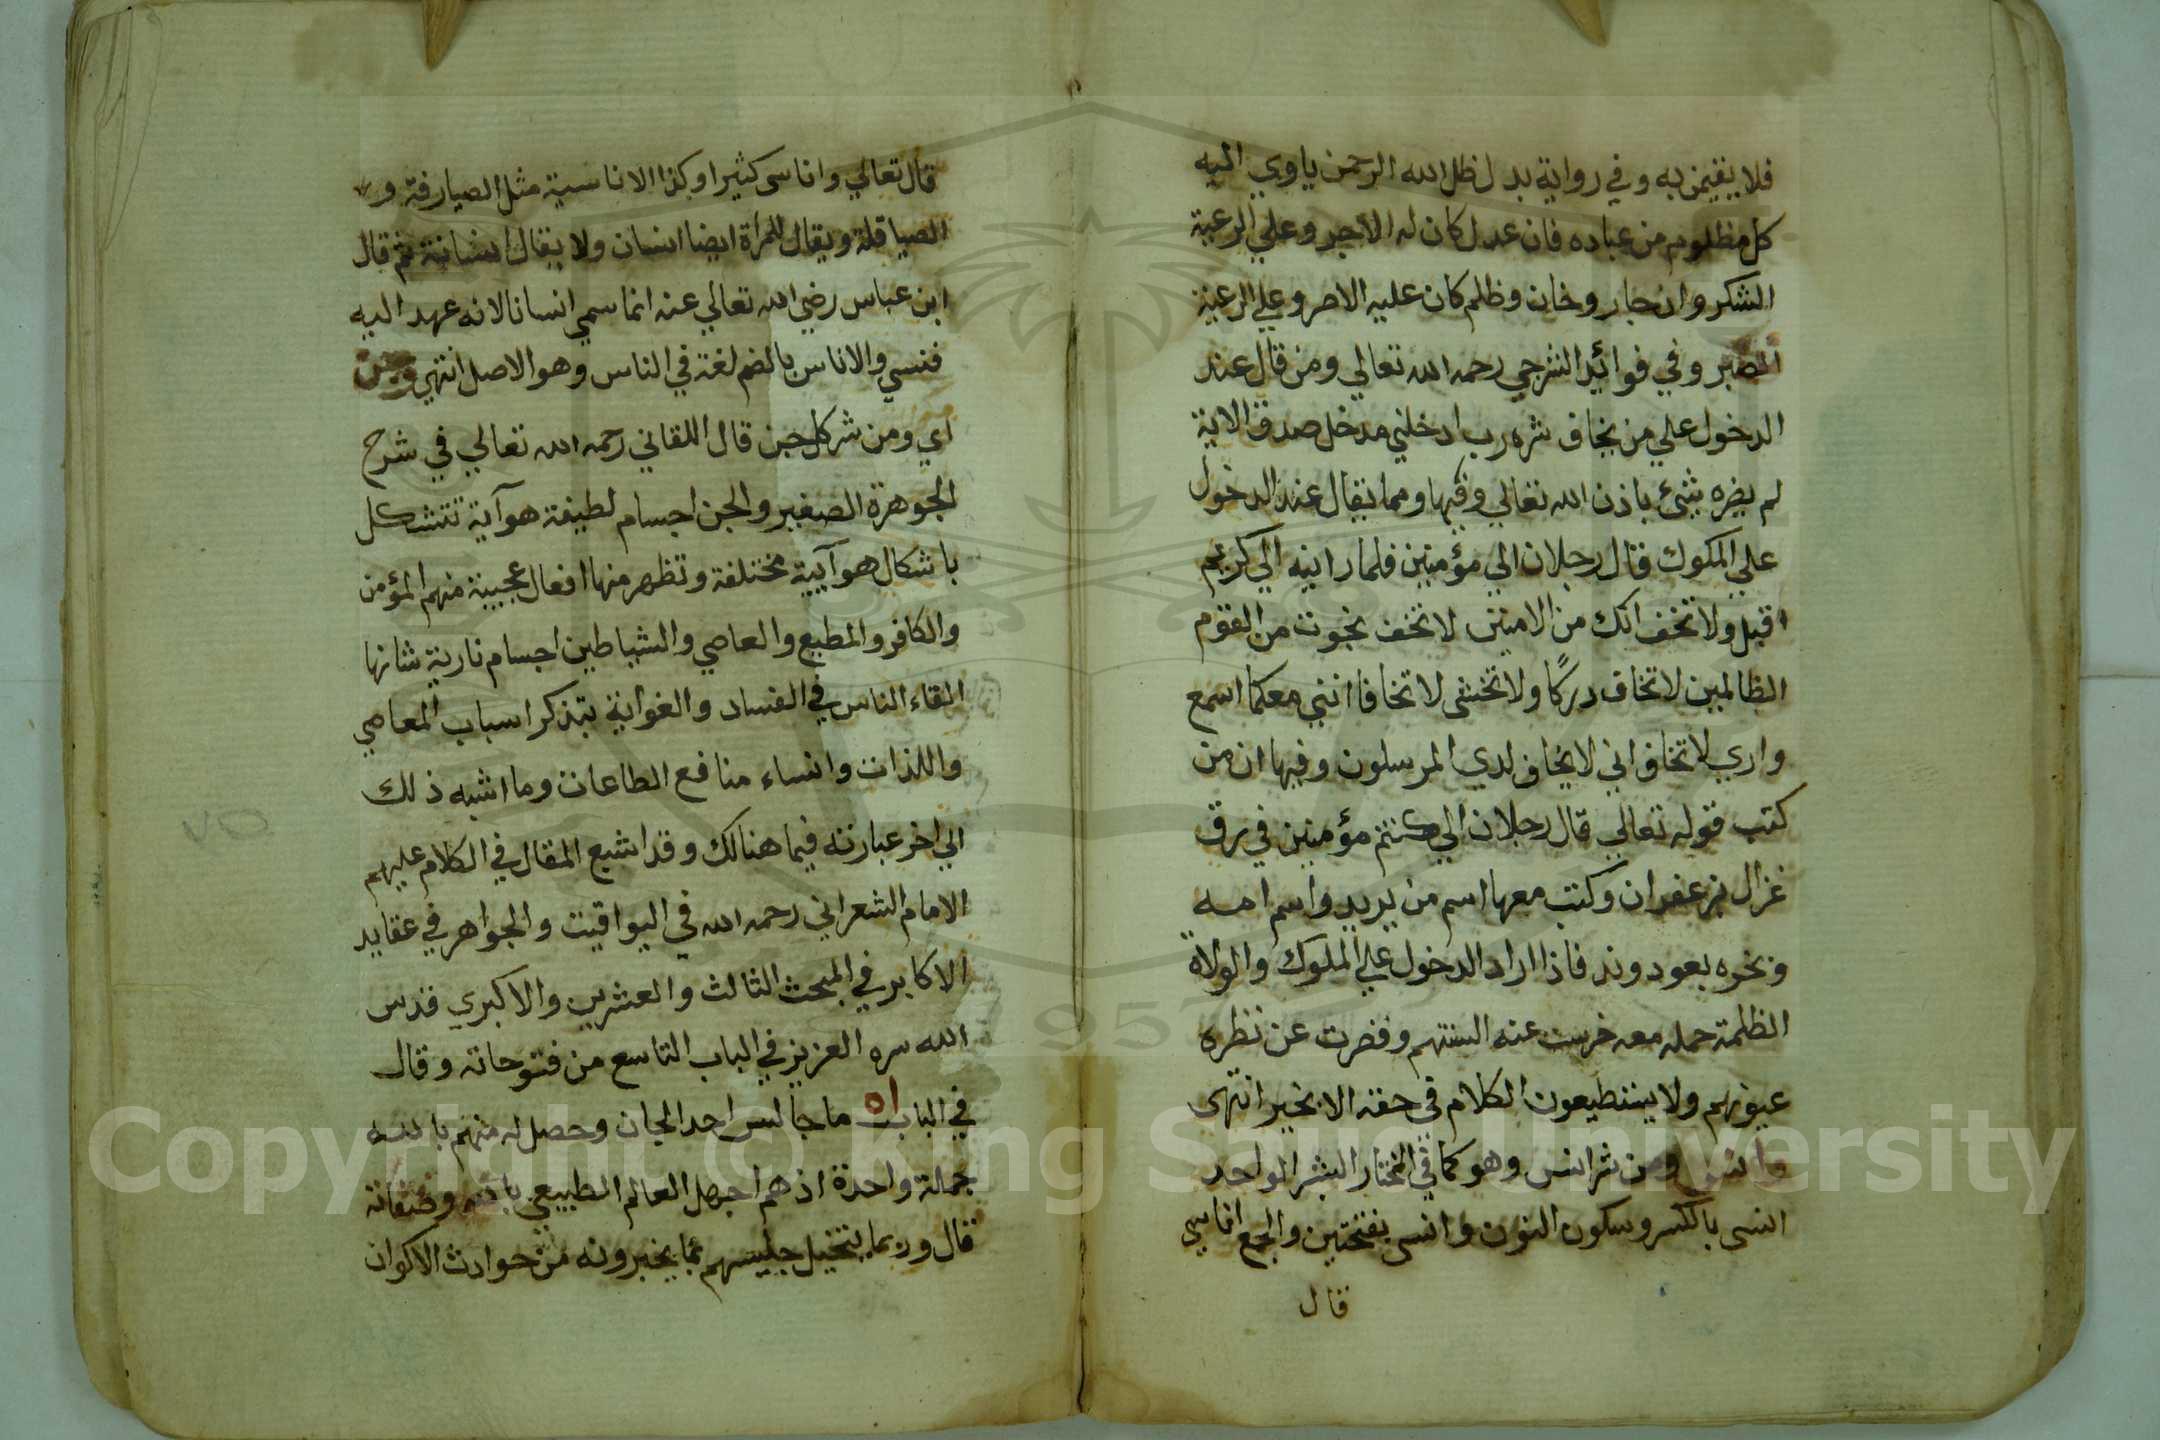 فلا يقيمن به وفي رواية بدل ظل الله الرحمن ياوي اليه
كل مظلوم من عباده فان عدل كان له الاجر وعلي الرعية
الشكر وان جار وخان وظلم كان عليه الاصر وعلي الرعية
الصبر وفي فوائد الشرجي رحمه الله تعالي ومن قال عند
الدخول علي من يخاف شره رب ادخلني مدخل صدق الاية
لم يضره شئ باذن الله تعالي وفيها ومما يقال عند الدخول
علي الملوك قال رجلان الي مؤمنين فلما راينه الي كريم
اقبل ولا تخف انك من الامنين لا تخف نجوت من القوم
الظالمين لا تخاف دركا ولا تخشى لا تخافا انني معكما اسمع
واري لا تخاف اني لا يخاف لدي المرسلون وفيها ان من
كتب قوله تعالي قال رجلان الي كنتم مؤمنين في رق
غزال بزعفران وكتب معها اسم من يريد واسم امه
وبخره بعود وند فاذا اراد الدخول علي الملوك والولاة
الظلمة حمله معه خرست عنه السنتهم وقصرت عن نظره
عيونهم ولا يستطيعون الكلام في حقه الا بخير انتهى
وانس ومن شر انس وهو كما في المختار البشر الواحد
انسى بالكسر وسكون النون وانسى بفتحتين والجمع اناسي
قال
قال تعالي واناسى كثيرا وكذا الاناسية مثل الصيارفة و
الصياقلة ويقال للمراة ايضا انسان ولا يقال انسانة ثم قال
ابن عباس رضي الله تعالي عنه انما سمي انسانا لانه عهد اليه
فنسي والاناس بالضم لغة في الناس وهو الاصل انتهي وجن
اي ومن شر كل جن قال اللقاني رحمه الله تعالي في شرح
الجوهرة الصغير والجن اجسام لطيفة هوآية تتشكل
باشكال هوآيية مختلفة وتظهر منها افعال عجيبة منهم المؤمن
والكافر والمطيع والعاصي والشياطين اجسام نارية شانها
القاء الناس في الفساد والغواية بتذكر اسباب المعاصي
واللذات وانساء منافع الطاعات وما اشبه ذلك
الي اخر عبارته فيما هنالك وقد اشبع المقال في الكلام عليهم
الامام الشعراني رحمه الله في اليواقيت والجواهر في عقايد
الاكابر في المبحث الثالث والعشرين والاكبري قدس
الله سره العزيز في الباب التاسع من فتوحاته وقال
في الباب اه ما جالس احد الجان وحصل له منهم بالله
جملة واحدة اذ هم اجهل العالم الطبيعي بالله وصفاته
قال وربما يتخيل جليسهم بما يخبرونه من حوادث الاكوان
Copyright © King Saud University